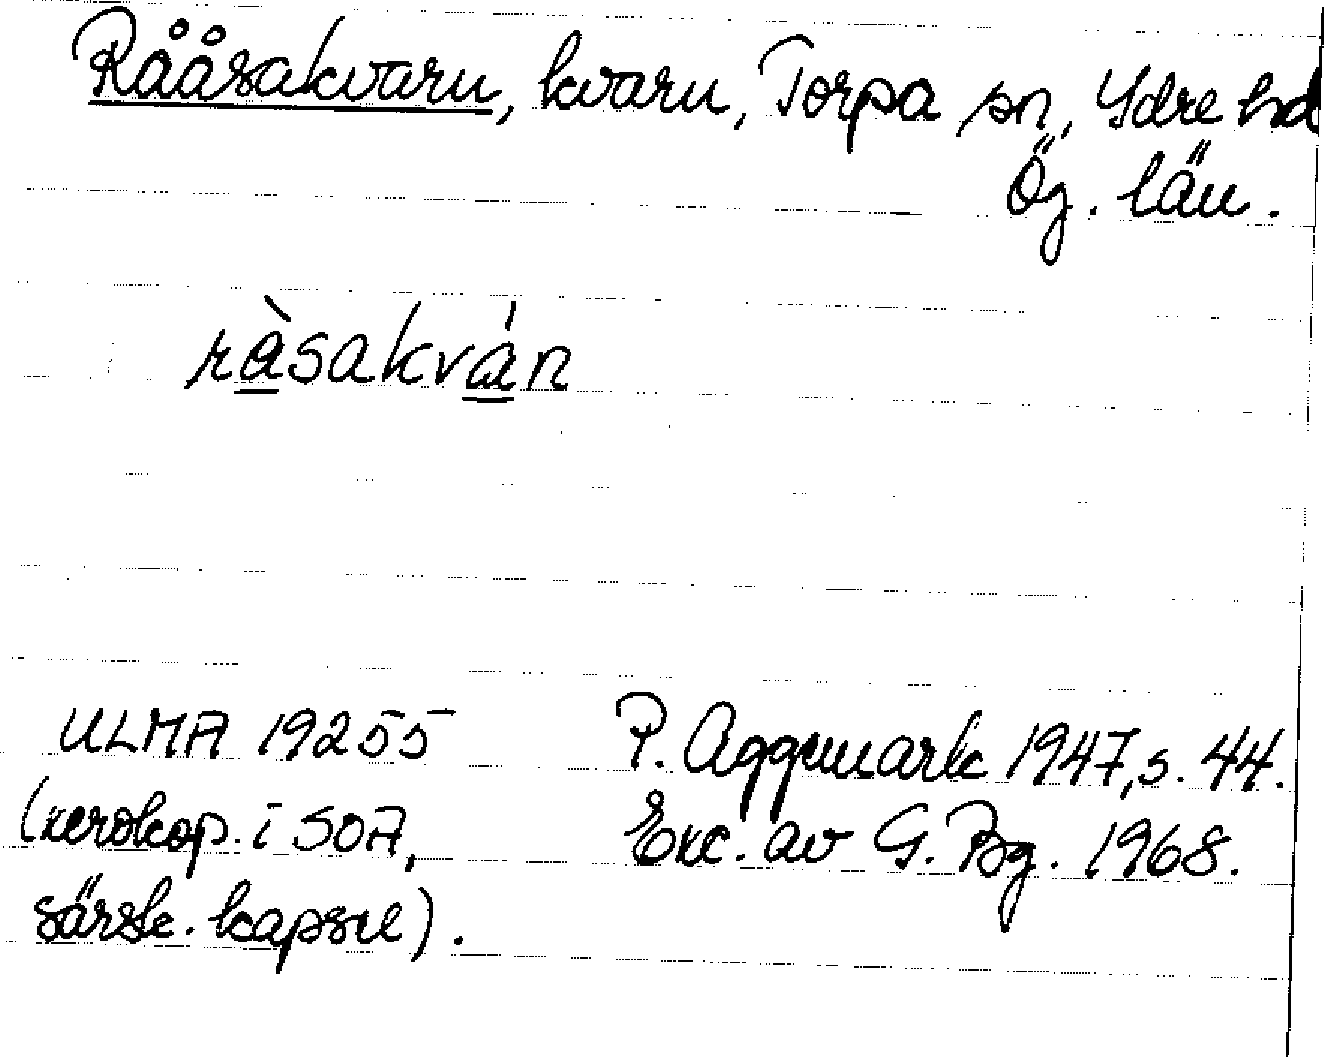 Rååsakvarn, kvarn, Torpa sn, Ydre hd
Ög. län.
ràsakván
ULMA 19255
(xerokop. i SOA,
särsk. kapsel).
P. Aggemark 1947, s. 44.
Exc. av G. Bg. 1968.